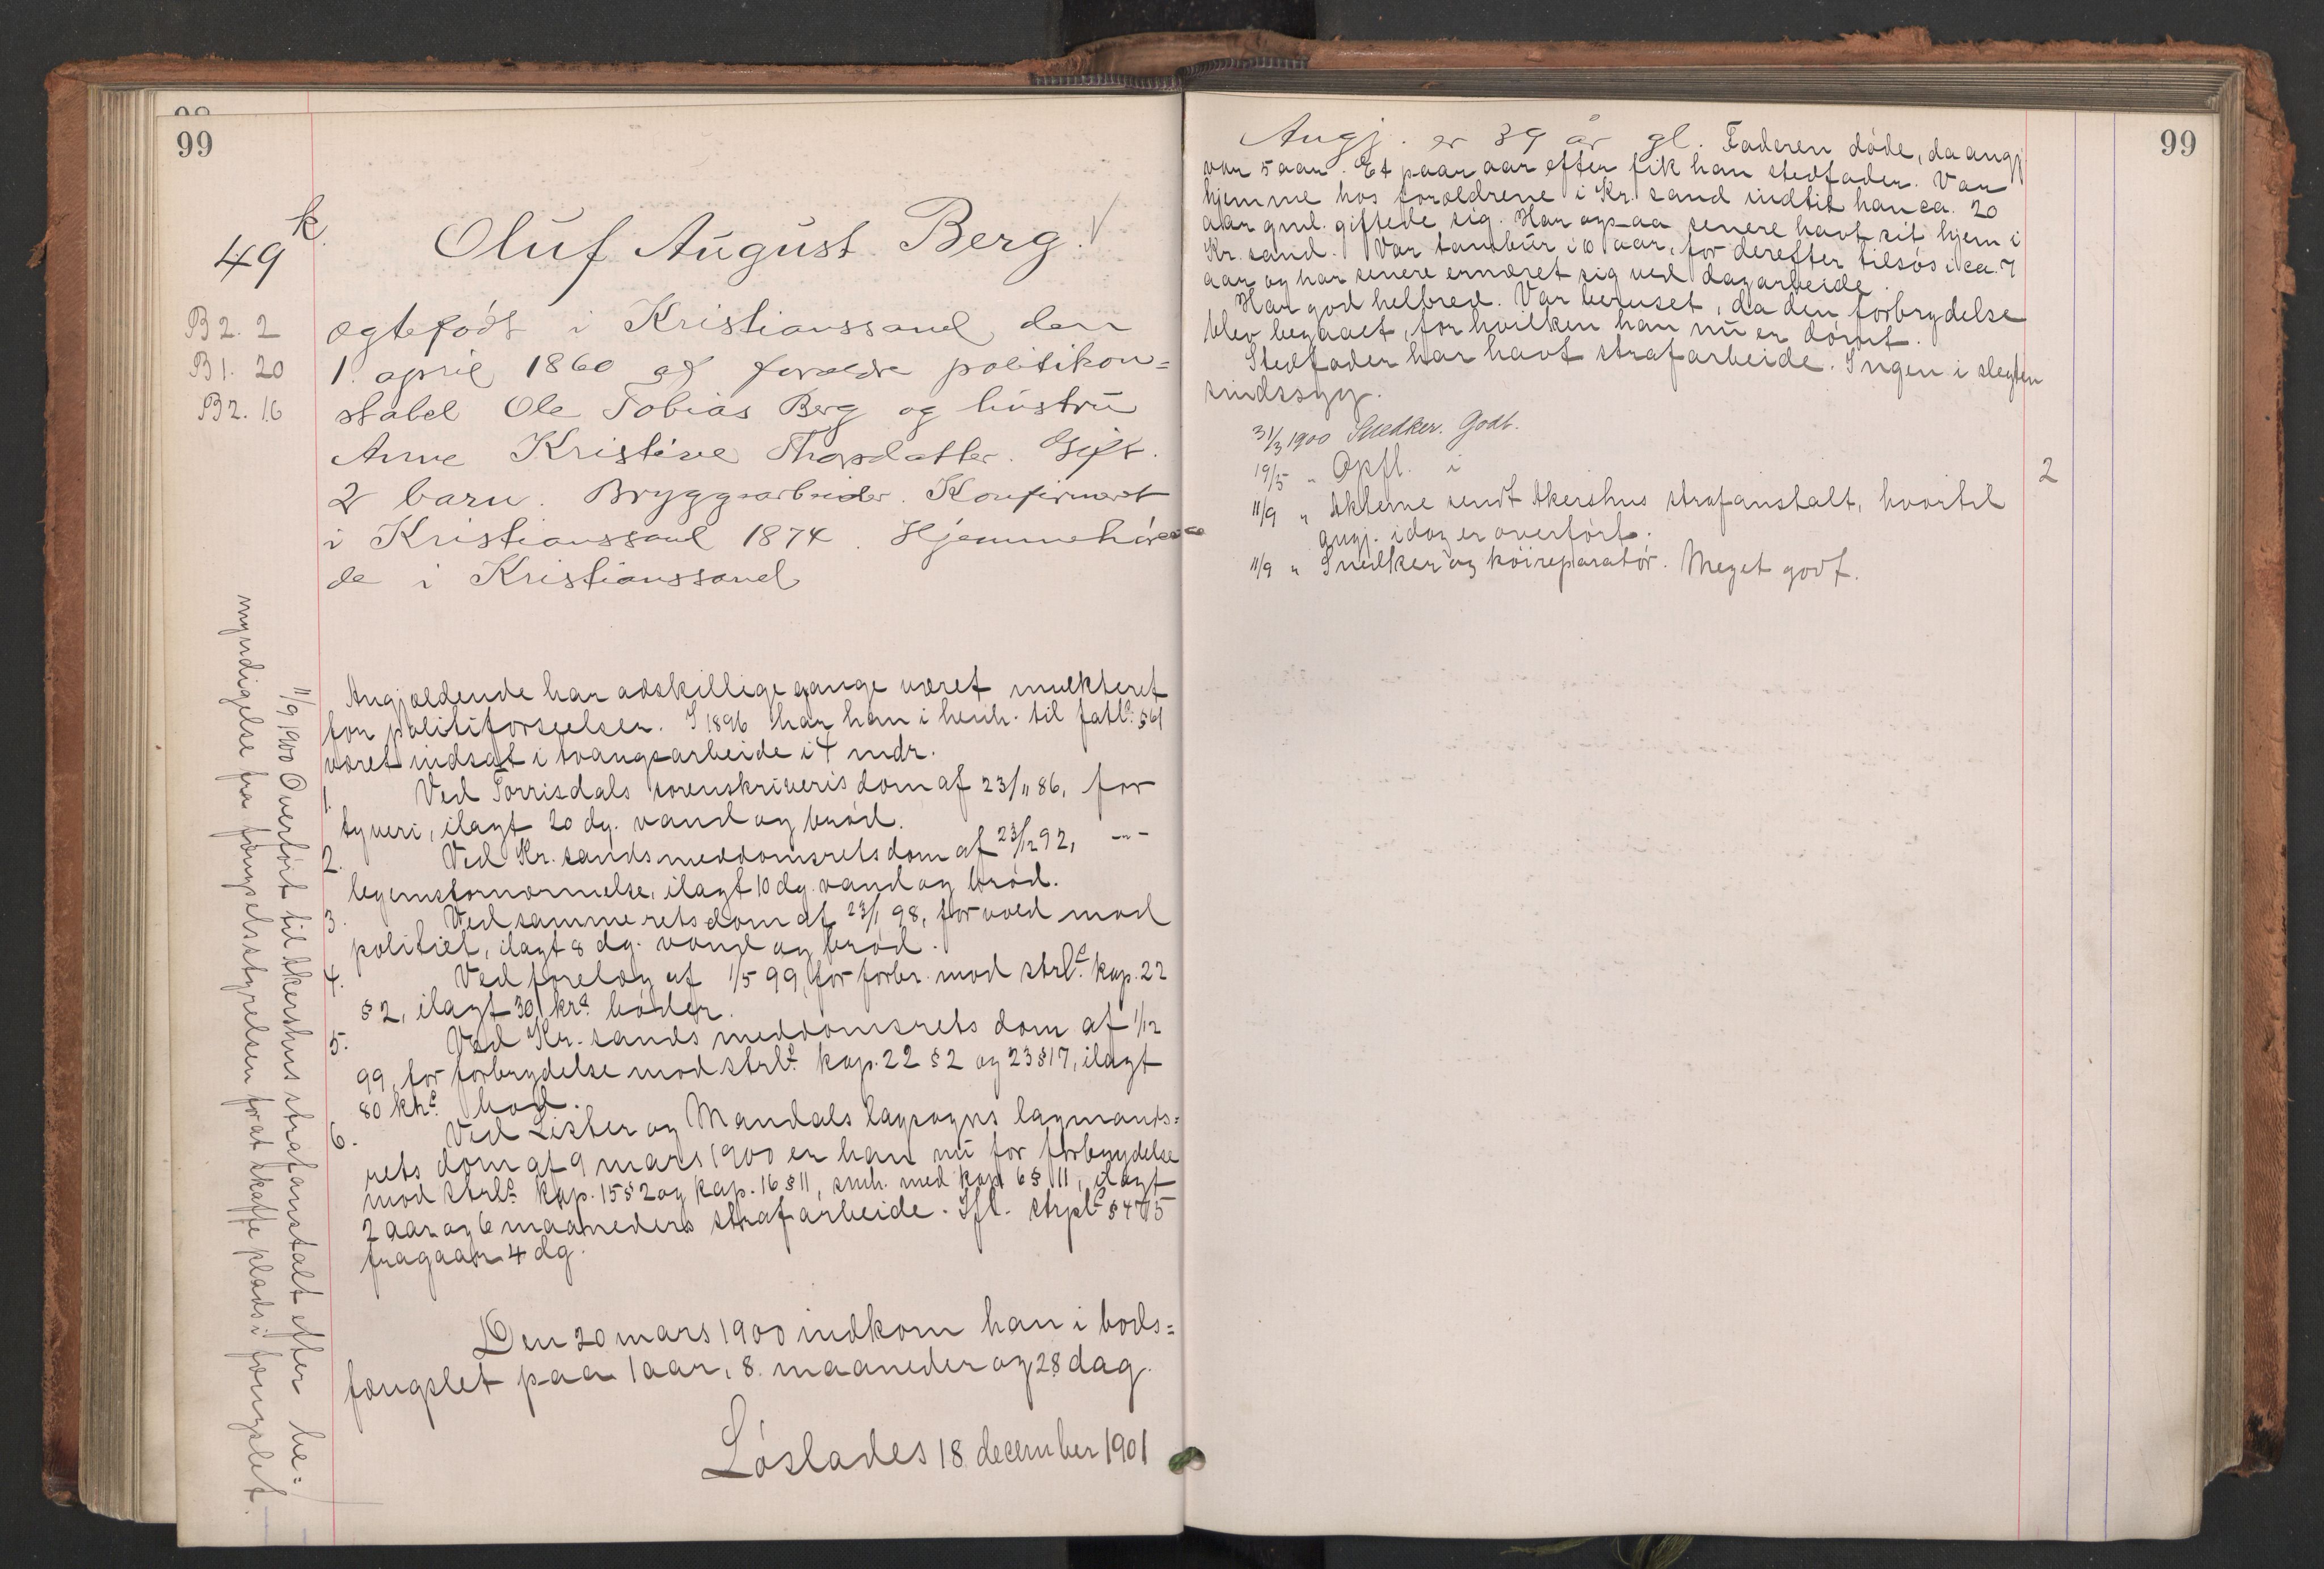 99
49 k.
Oluf August Berg.
B 2. 2
B 1. 20
B 2. 16
ægtefødt i Kristianssand den
1. april 1860 af forældre politikon=
stabel Ole Tobias Berg og hustru
Anne Kristine Gift.
2 barn. Bryggearbeider. Konfirmeret
i Kristianssand 1874. Hjemmehøren=
de i Kristianssand
Angjældende har adskillige gange været mulkteret
for politiforseelser. I 1896 har han i henh. til fatl. §61
været indsat i tvangsarbeide i 4 mdr.
1. Ved Torrisdals sorenskriveris dom af 23/11 86, for
tyveri, ilagt 20 dg. vand og brød.
2. Ved Kr.sands meddomsrets dom af 23/12 92, -"-
legemsfornærmelse, ilagt 10 dg. vand og brød.
3. Ved samme rets dom af 23/1 98, for vold mod
politiet, ilagt 8 dg. vand og brød.
4. Ved forelæg af 1/5 99, for forbr. mod strl. kap. 22
§ 2, ilagt 30 krs. bøder.
5. Ved Kr.sands meddomsrets dom af 1/12
99, for forbrydelse mod strl. kap. 22 § 2 og 23 § 17, ilagt
80 krs. bod.
6. Ved Lister og Mandals lagsogns lagmands=
rets dom af 9 mars 1900 er han nu for forbrydelse
mod strl. kap. 15 § 2 og kap. 16 § 11, smh. med kap 6 § 11, ilagt
2 aar og 6 maaneders strafarbeide. Ifl. strpl. § 475
fragaar 4 dg.
Den 20 mars 1900 indkom han i bods=
fængslet paa 1 aar, 8 maaneder og 28 dag.
Løslades 18 december 1901
11/9 1900 Overført til Akershus strafanstalt efter be=
myndigelse fra fængselsstyrelsen forat skaffe plads i fængslet.
99
Angj. er 39 år gl. Faderen døde, da angj
var 5 aar. Et paar aar efter fik han stedfader. Var
hjemme hos forældrene i Kr.sand indtil han ca. 20
aar gml. giftede sig. Har ogsaa senere havt sit hjem i
Kr.sand. Var tambur i 10 aar, for derefter tilsøs i ca. 7
aar og har senere ernæret sig ved dagarbeide.
Har god helbred. Var beruset, da den forbrydelse
blev begaaet, for hvilken han nu er dømt.
Stedfader har havt strafarbeide. Ingen i slegten
sindssyg.
31/3 1900 Snedker. Godt.
19/5 " Opfl. i 2
11/9 " Akterne sendt Akershus strafanstalt, hvortil
angj. idag er overført.
11/9 " Snedker og køireparatør. Meget godt.